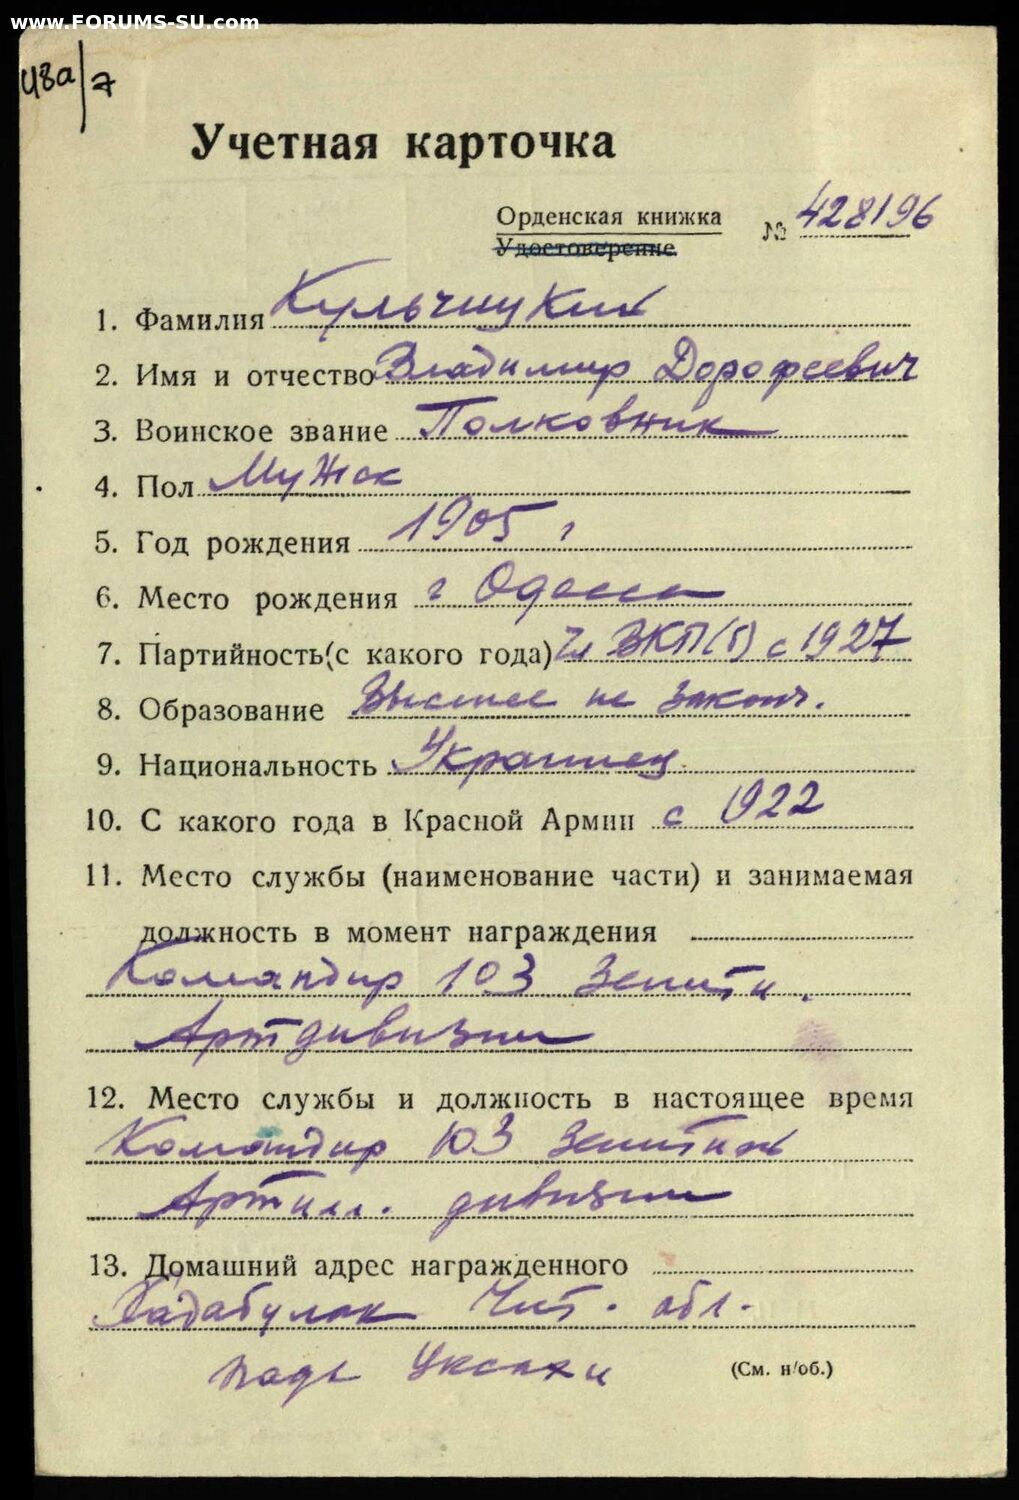 www.FORUMS-SU.com
48а/7
Учетная карточка
Орденская книжка № 428196
Удостоверение
1. Фамилия Кульчицкий
2. Имя и отчество Владимир Дорофеевич
3. Воинское звание Полковник
4. Пол Мужск
5. Год рождения 1905 г
6. Место рождения г Одесса
7. Партийность(с какого года) Чл ВКП(б) с 1927
8. Образование Высшее не законч.
9. Национальность Украинец
10. С какого года в Красной Армии с 1922
11. Место службы (наименование части) и занимаемая
должность в момент награждения
Командир 103 Зенитн.
Артдивизии
12. Место службы и должность в настоящее время
Командир 103 Зенитной
Артилл. дивизии
13. Домашний адрес награжденного
Хадабулак Чит. обл.
падь
(См. н/об.)